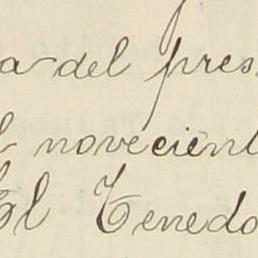 a del pres
l novecient
El Tenedo